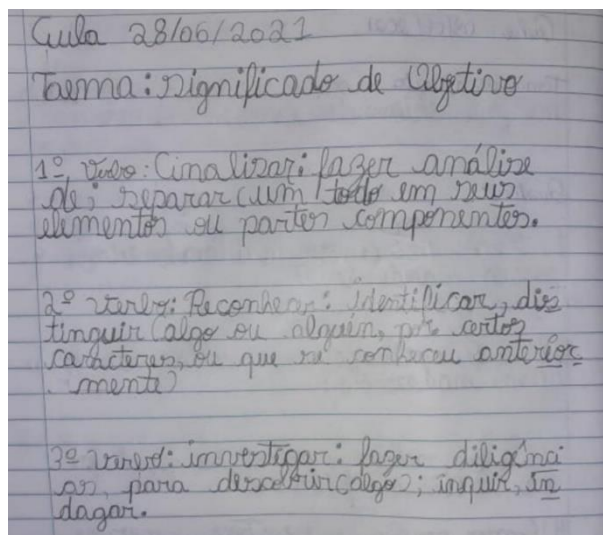 Aula 28/06/2021
Taema: significado de Objetivo
1º Verbo: Analisar: fazer análise
de; separar (um todo em seus
elementos ou partes componentes.
2º verbo: Reconhecer: identificar, dis
tinguir (algo ou alguém, por certos
caracteres, ou que se conheceu anterior
mente)
3º verbo: investigar: fazer diligênci
as, para descobrir (algo); inquir, in
dagar.